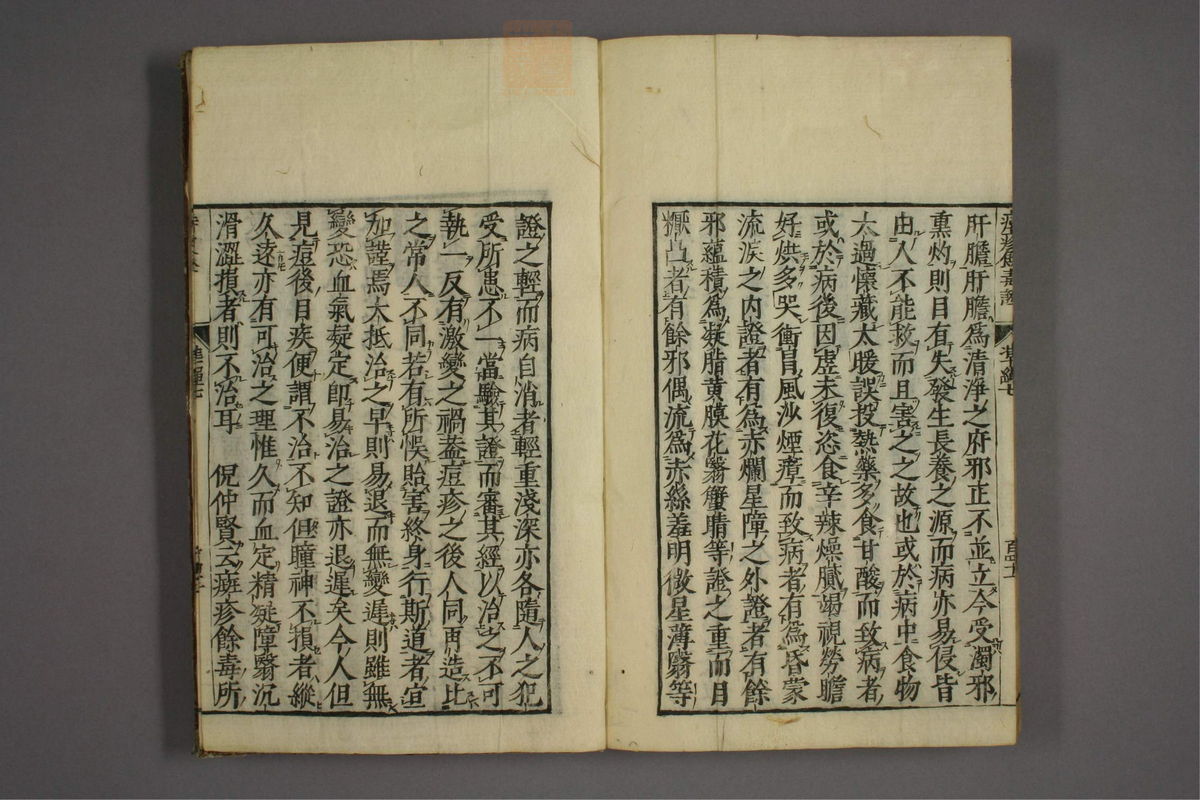 肝膽肝膽爲清淨之府邪正不並立今受濁邪
熏灼則目有失發生長養之源而病亦易侵皆
由人不能救而且害之之故也或於病中食物
太過懷藏太暖誤投熱藥多食甘酸而致病者
或於病後因虛未復恣食辛辣燥膩竭視勞膽
好烘多哭衝冒風沙煙瘴而致病者有爲昏蒙
流淚之内證者有爲赤爛星障之外證者有餘
邪蘊積爲凝脂黄膜花翳蟹睛等證之重而目
凸者有餘邪偶流爲赤絲羞明微星薄翳等
證之輕而病自消者輕重淺深亦各隨人之犯
受所患不一當驗其證而審其經以治之不可
執一反有激變之禍葢痘疹之後人同再造比
之常人不同若有所悞貽害終身行斯道者宜
加謹焉大抵治之早則易退而無變遲則雖無
變恐血氣凝定卽易治之證亦退遲矣今人但
見痘後目疾便謂不治不知但瞳神不損者縱
久遠亦有可治之理惟久而血定精凝障翳沉
滑澀損者則不治耳 倪仲賢云斑疹餘毒所